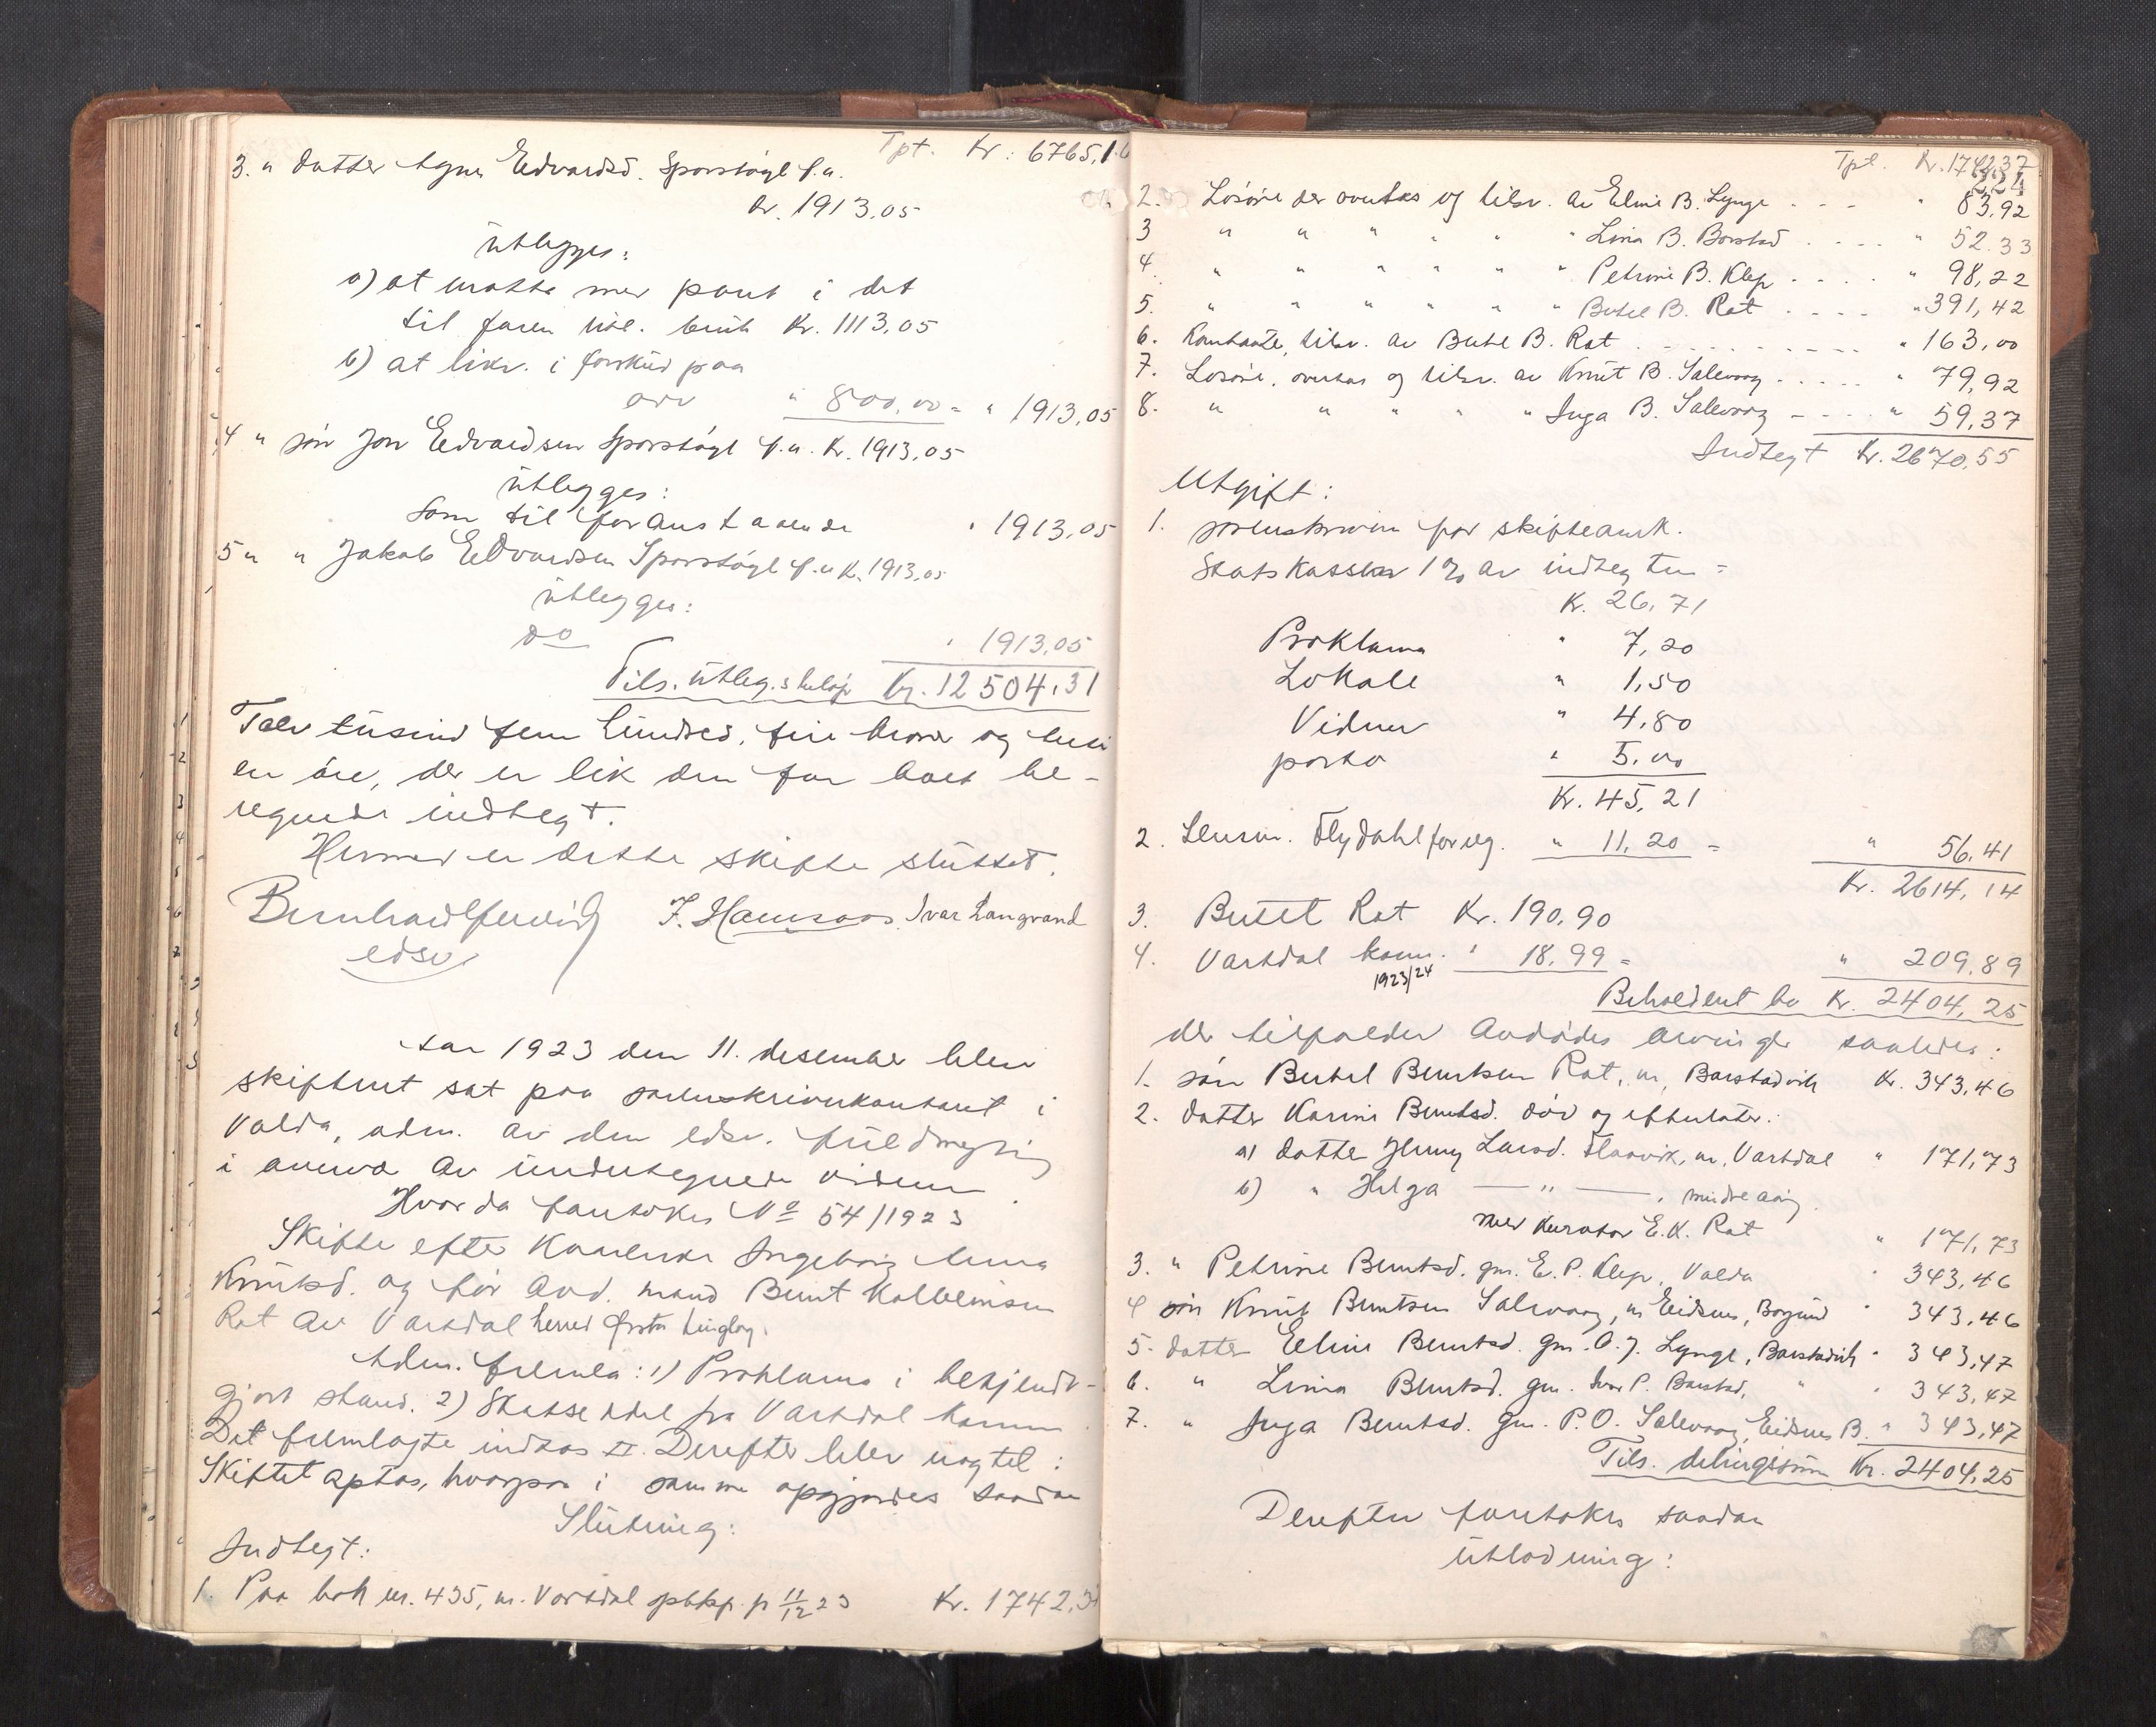 Tpt. Kr: 6765,16
3. " datter Agnes Edvardsd. Sporstøyl f.u.
Kr. 1913,05
utlegges:
a) at motta mer pant i det
til faren utl. bruk Kr. 1113,05
b) at likv. i forskud paa
arv " 800,00 = " 1913,05
4 " søn Jon Edvardsen Sporstøyl f.u. Kr. 1913,05
utlegges:
som til foranstaaende " 1913,05
5 " " Jakob Edvardsen Sporstøyl f.u Kr. 1913,05
utlegges:
do " 1913,05
Tils. utleg.s beløp Kr. 12504,31
Tolv tusind fem hundred, fire kroner og tretti
en øre, der er lik den for boet be-
regnede indtegt.
Hermed er dette skifte sluttet.
edsv. J. Hamsaas. Ivar Langvand
Aar 1923 den 11. desember blev
skifteret sat paa sorenskriverkontoret i
Volda, adm. av den edsv. fuldmegtig
i nærvær av undertegnede vidner.
Hvorda foretokes No 54/1923
Skifte efter Konerde Ingeborg Anna
Knutsd. og før avd. mand Bernt Kolbeinsen
Rot av Vartdal herred Ørsta tinglag.
Adm. fremla: 1) Proklama i bekjendt-
gjort stand. 2) Skatseddel fra Vartdal komm.
Det fremlagte indtas II. Derefter blev nogtel:
Skiftet optas, hvorpaa i samme opgjordes saadan
Slutning:
Indtegt:
1. Paa bok nr. 435, m. Vartdal spbkp. pr 11/12 23 Kr. 1742,37
Tpt. Kr. 1742,37
224
2. Løsøre der overtas og tilsv. av Eline B. Lynge - - - " 83,92
3 " " " " " " Lina B. Barstad . . . . " 52.33
4. " " " " " " Petrine B. Klep . . . . " 98,22
5. " " " " " " Bertel B. Rot . . . . " 391,42
6. Kontante, tilsv. av Bertel B. Rot . . . . . . . . " 163,00
7. Løsøre, overtas og tilsv. av Knut B. Salevaag . . . . . " 79,92
8. " " " " " Inga B. Salevaag - . . . " 59,37
Indtegt Kr. 2670,55
Utgift:
1. sorenskriveren for skifteavsk.
Statskassen 1% av indtegten =
Kr. 26,71
Proklama " 7,20
Lokale " 1,50
Vidner " 4,80
porto " 5,00
Kr. 45,21
2. Lensm. Flydahl for reg. " 11,20 = " 56,41
Kr. 2614,14
3. Bertel Rot Kr. 190,90
4. Vartdal komm. " 18,99 = " 209,89
1923/24
Beholdent bo Kr. 2404,25
der tilfalder avdødes arvinger saaledes:
1. søn Bertel Berntsen Rot, m, Barstadvik Kr. 343,46
2. datter Karine Berntsd. død og efterlater:
a) datter Jenny Larsd. Flaavik, m, Vartdal " 171,73
b) " Helga — " — , mindreaarig
med kurator E.K. Rot " 171,73
3. " Petrine Berntsd. gm. E. P. Klep, Volda " 343,46
4 søn Knut Berntsen Salevaag, m Eidsnes, Borgund " 343,46
5. datter Eline Berntsd. gm. O. J. Lynge, Barstadvik " 343,47
6. " Lina Berntsd. gm. Ivar P. Barstad, " " 343,47
7. " Inga Berntsd. gm. P. O. Salevaag, Eidsnes B. " 343,47
Tils. delingssum Kr. 2404,25
Derefter foretokes saadan
utlodning: